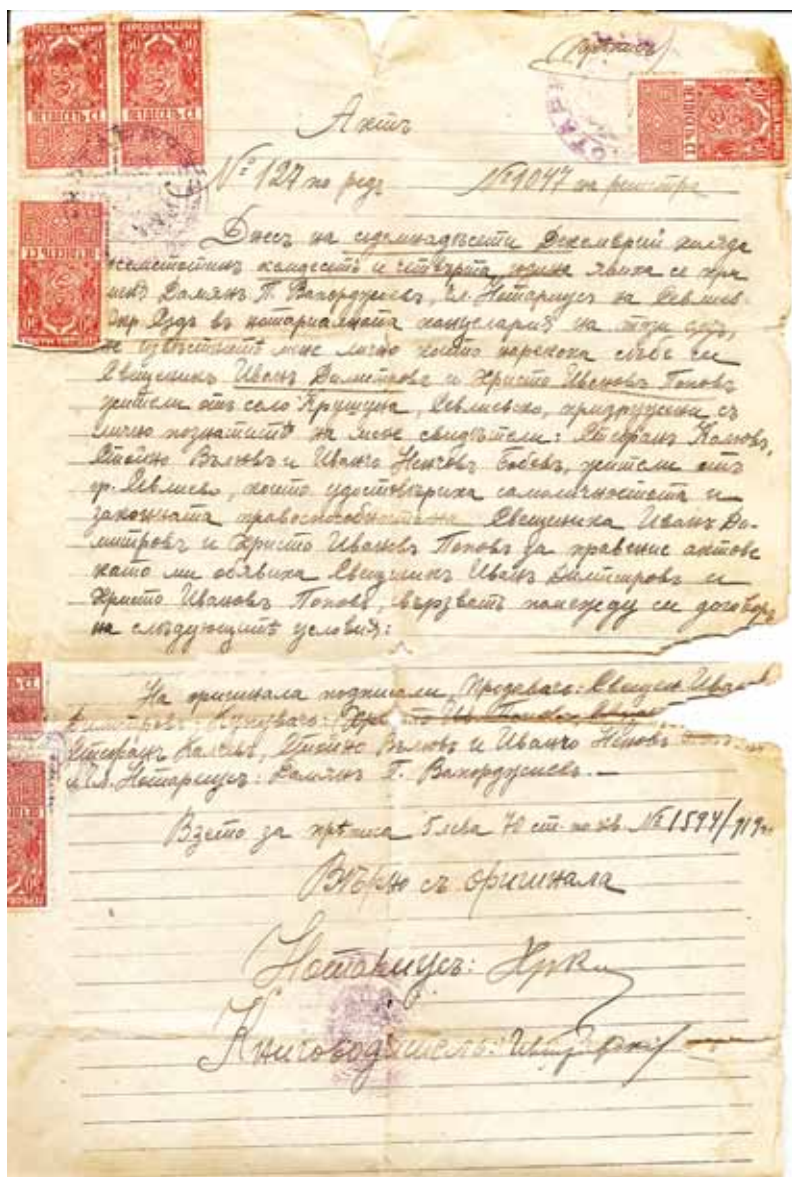 ГЕРБОВА МАРКА
50 50
ПЕТДЕСЕТЬ СТ. ПЕТДЕСЕТЬ СТ.
(Прѣписъ)
Актъ
№ 127 по редъ №1047 на регистра
Днесъ на седемнадѣсети Декемврий хиляда
осемстотинъ и четвърта, явиха се при
менъ Дамянъ П. Вакорджиевъ, Гл. Нотариусъ на Севлиев.
Окр. Сѫдъ въ нотариалната канцелария на този сѫдъ,
не извѣстнитѣ мене лично които нарекоха себе си
Свещеникъ Иванъ Димитровъ и Христо Ивановъ Поповъ
жители отъ село Крушуна, Севлиевско, придружени съ
лично познатитѣ на мене свидѣтели: Стефанъ Калювъ,
Стойно Вълювъ и Иванчо Ненчовъ Бобевъ, жители отъ
гр. Севлиево, които удостовѣриха самоличностьта и
законната правоспособность на Свещеника Иванъ Ди-
митровъ и Христо Ивановъ Поповъ за правение актове
като ми обявиха Свещеникъ Иванъ Димитровъ и
Христо Ивановъ Поповъ, свързватъ помежду си договоръ
на слѣдующитѣ условия:
На оригинала подписали, Продавачъ: Свещен. Иванъ
Димитровъ. Купувачъ: Христо Ив. Поповъ,
Стефанъ Калювъ, Стойно Вълювъ и Иванчо Неновъ
и Гл. Нотариусъ: Дамянъ П. Вакорджиевъ. —
Взето за прѣписа 5 лева 70 ст. по кв. №1594/919
Вѣрно съ оригинала
Нотариусъ:
Книговодитель: